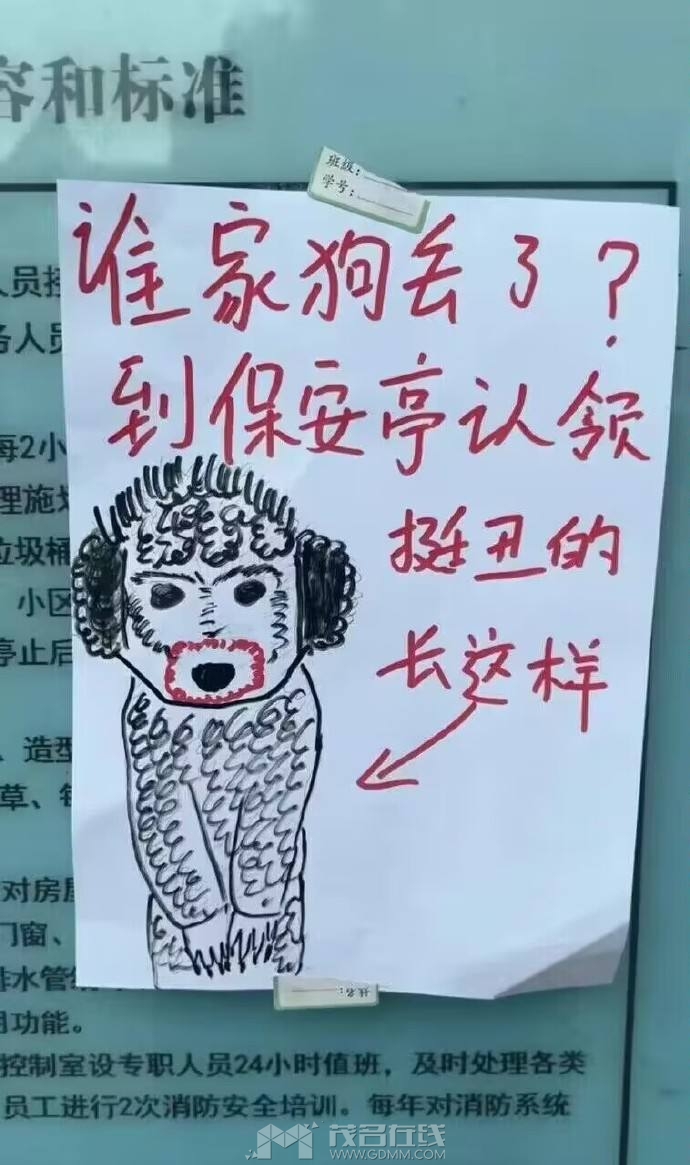 容和标准
班级:
学号:
谁家狗丢了?
到保安亭认领
挺丑的
长这样
人员
务人员
每2小
理施
垃圾桶
小区
停止后
、造型
草、每
对房屋
门窗、
排水管
用功能。
控制室设专职人员24小时值班，及时处理各类
员工进行2次消防安全培训。每年对消防系统
姓名:
茂名在线
WWW.GDMM.COM